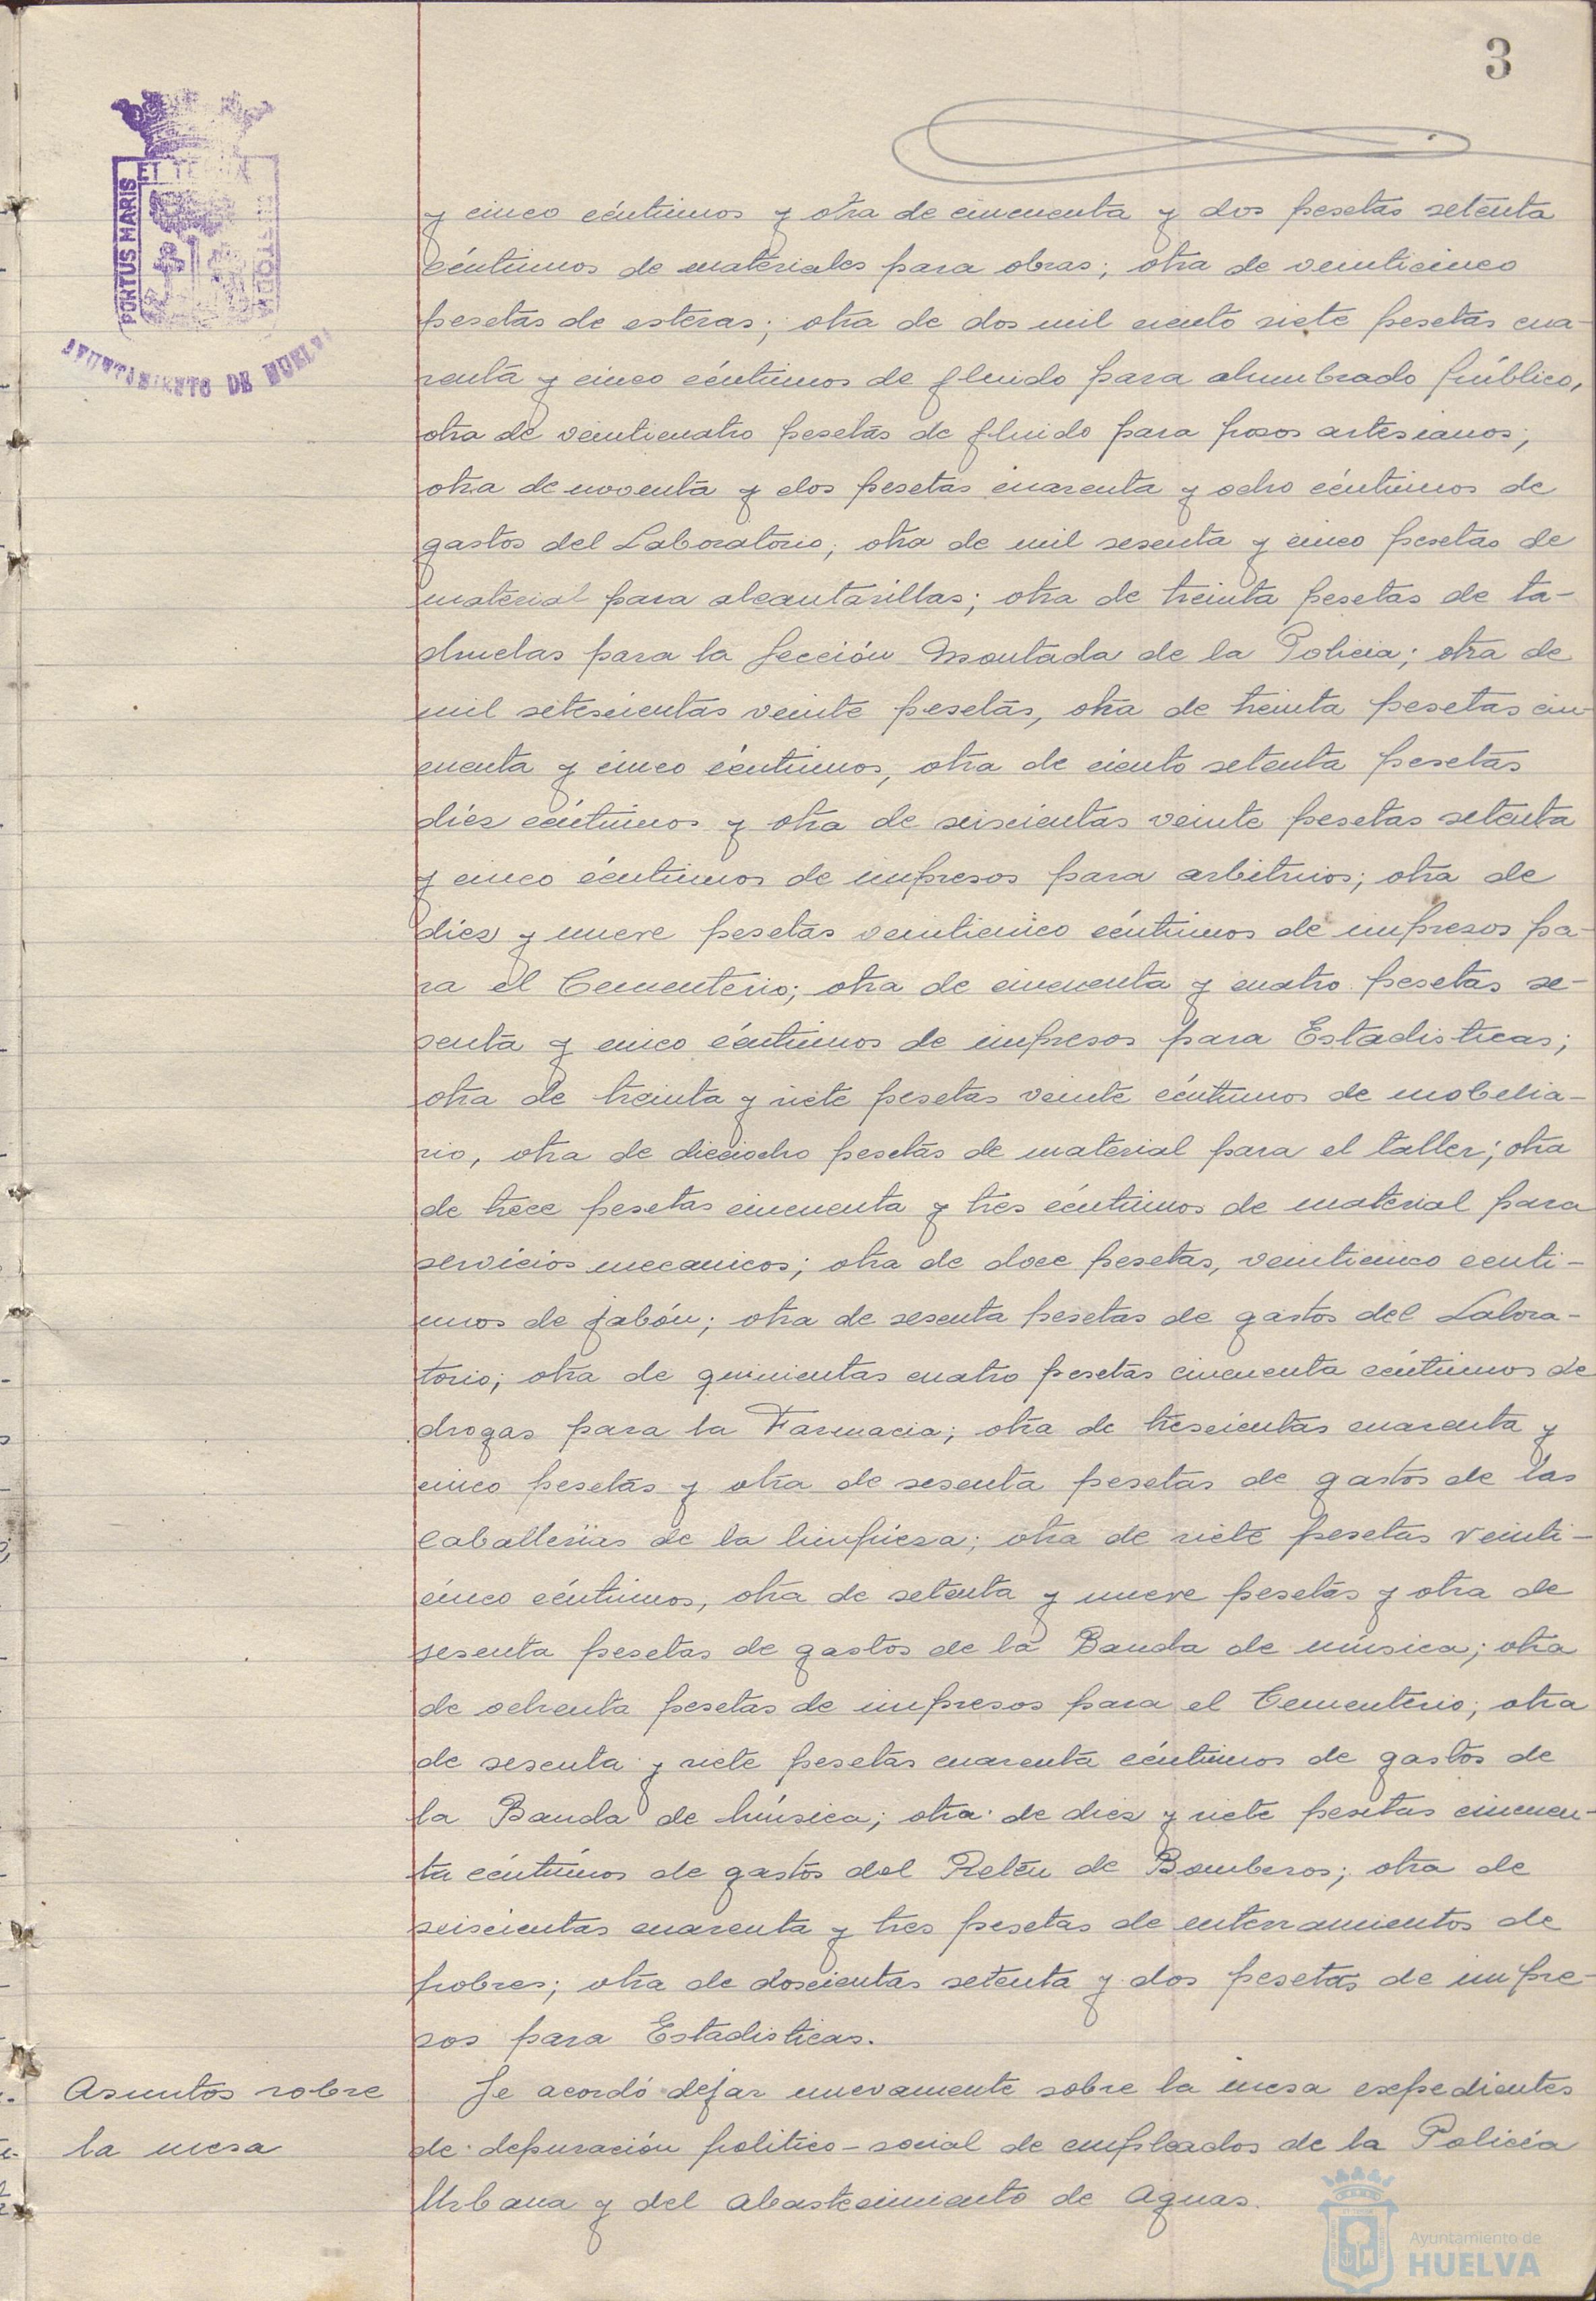 3
PORTUS MARIS
ET TERRAE
CUSTODIAM
AYUNTAMIENTO DE HUELVA
y cinco céntimos y otra de cincuenta y dos pesetas setenta
céntimos de materiales para obras; otra de veinticinco
pesetas de esteras; otra de dos mil ciento siete pesetas cua-
renta y cinco céntimos de fluido para alumbrado público,
otra de veinticuatro pesetas de fluido para pozos artesianos;
otra de noventa y dos pesetas cuarenta y ocho céntimos de
gastos del Laboratorio; otra de mil sesenta y cinco pesetas de
material para alcantarillas; otra de treinta pesetas de ta-
chuelas para la Sección Montada de la Policia; otra de
mil setescientas veinte pesetas, otra de treinta pesetas cin-
cuenta y cinco céntimos, otra de ciento setenta pesetas
diez céntimos y otra de seiscientas veinte pesetas setenta
y cinco céntimos de impresos para arbitrios; otra de
diez y nueve pesetas veinticinco céntimos de impresos pa-
ra el Cementerio; otra de cincuenta y cuatro pesetas se-
senta y cinco céntimos de impresos para Estadisticas;
otra de treinta y siete pesetas veinte céntimos de mobilia-
rio, otra de dieciocho pesetas de material para el taller; otra
de trece pesetas cincuenta y tres céntimos de material para
servicios mecanicos; otra de doce pesetas, veinticinco centi-
mos de jabón; otra de sesenta pesetas de gastos del Labora-
torio; otra de quinientas cuatro pesetas cincuenta céntimos de
drogas para la Farmacia; otra de trescientas cuarenta y
cinco pesetas y otra de sesenta pesetas de gastos de las
caballerias de la limpieza; otra de siete pesetas veinti-
cinco céntimos, otra de setenta y nueve pesetas y otra de
sesenta pesetas de gastos de la Banda de música; otra
de ochenta pesetas de impresos para el Cementerio; otra
de sesenta y siete pesetas cuarenta céntimos de gastos de
la Banda de Música; otra de diez y siete pesetas cincuen-
ta céntimos de gastos del Retén de Bomberos; otra de
seiscientas cuarenta y tres pesetas de enterramientos de
pobres; otra de doscientas setenta y dos pesetas de impre-
sos para Estadisticas.
Asuntos sobre
la mesa
Se acordó dejar nuevamente sobre la mesa expedientes
de depuración politico-social de empleados de la Policía
Urbana y del Abastecimiento de Aguas.
Ayuntamiento de
HUELVA